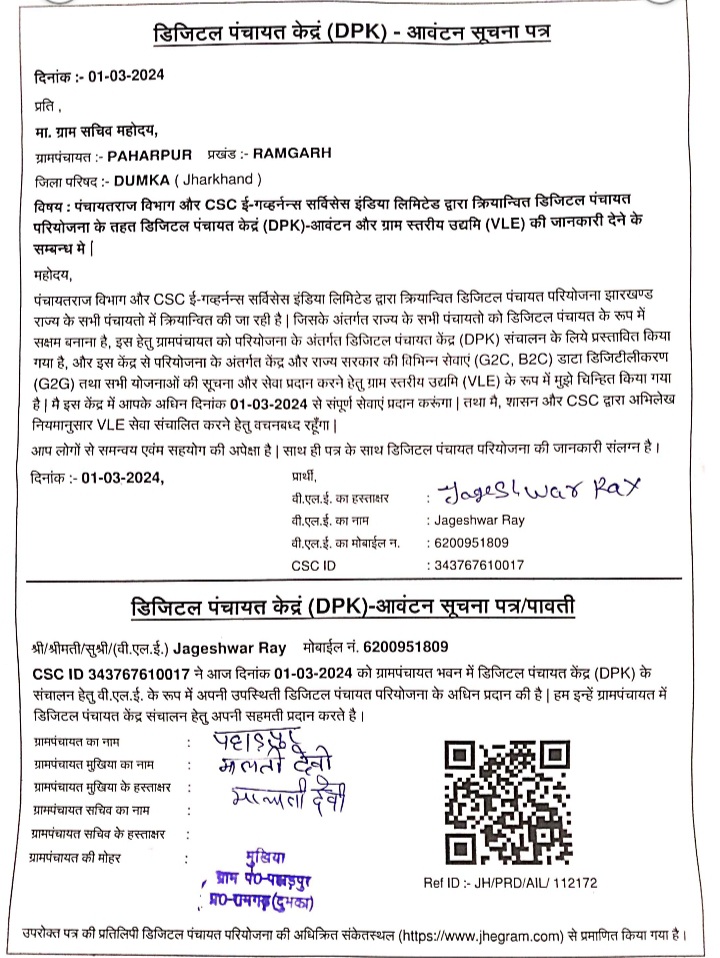 डिजिटल पंचायत केद्रं (DPK) - आवंटन सूचना पत्र
दिनांक :- 01-03-2024
प्रति ,
मा. ग्राम सचिव महोदय,
ग्रामपंचायत :- PAHARPUR प्रखंड :- RAMGARH
जिला परिषद :- DUMKA ( Jharkhand )
विषय : पंचायतराज विभाग और CSC ई-गव्हर्नन्स सर्विसेस इंडिया लिमिटेड द्वारा क्रियान्वित डिजिटल पंचायत
परियोजना के तहत डिजिटल पंचायत केद्रं (DPK)-आवंटन और ग्राम स्तरीय उद्यमि (VLE) की जानकारी देने के
सम्बन्ध मे |
महोदय,
पंचायतराज विभाग और CSC ई-गव्हर्नन्स सर्विसेस इंडिया लिमिटेड द्वारा क्रियान्वित डिजिटल पंचायत परियोजना झारखण्ड
राज्य के सभी पंचायतो में क्रियान्वित की जा रही है | जिसके अंतर्गत राज्य के सभी पंचायतो को डिजिटल पंचायत के रूप में
सक्षम बनाना है, इस हेतु ग्रामपंचायत को परियोजना के अंतर्गत डिजिटल पंचायत केंद्र (DPK) संचालन के लिये प्रस्तावित किया
गया है, और इस केंद्र से परियोजना के अंतर्गत केंद्र और राज्य सरकार की विभिन्न सेवाएं (G2C, B2C) डाटा डिजिटीलीकरण
(G2G) तथा सभी योजनाओं की सूचना और सेवा प्रदान करने हेतु ग्राम स्तरीय उद्यमि (VLE) के रूप में मुझे चिन्हित किया गया
है | मै इस केंद्र में आपके अधिन दिनांक 01-03-2024 से संपूर्ण सेवाएं प्रदान करूंगा | तथा मै, शासन और CSC द्वारा अभिलेख
नियमानुसार VLE सेवा संचालित करने हेतु वचनबध्द रहूँगा |
आप लोगों से समन्वय एवंम सहयोग की अपेक्षा है | साथ ही पत्र के साथ डिजिटल पंचायत परियोजना की जानकारी संलग्न है ।
दिनांक :- 01-03-2024, प्रार्थी,
वी.एल.ई. का हस्ताक्षर : Jageshwar Ray
वी.एल.ई. का नाम : Jageshwar Ray
वी.एल.ई. का मोबाईल न. : 6200951809
CSC ID : 343767610017
डिजिटल पंचायत केद्रं (DPK)-आवंटन सूचना पत्र/पावती
श्री/श्रीमती/सुश्री/(वी.एल.ई.) Jageshwar Ray मोबाईल नं. 6200951809
CSC ID 343767610017 ने आज दिनांक 01-03-2024 को ग्रामपंचायत भवन में डिजिटल पंचायत केंद्र (DPK) के
संचालन हेतु वी.एल.ई. के रूप में अपनी उपस्थिती डिजिटल पंचायत परियोजना के अधिन प्रदान की है | हम इन्हें ग्रामपंचायत में
डिजिटल पंचायत केंद्र संचालन हेतु अपनी सहमती प्रदान करते है ।
ग्रामपंचायत का नाम : पहाड़पुर
ग्रामपंचायत मुखिया का नाम : मालती देवी
ग्रामपंचायत मुखिया के हस्ताक्षर : मालती देवी
ग्रामपंचायत सचिव का नाम :
ग्रामपंचायत सचिव के हस्ताक्षर :
ग्रामपंचायत की मोहर : मुखिया
ग्राम पं०-पहाड़पुर
प्र०-रामगढ़ (दुमका)
Ref ID :- JH/PRD/AIL/ 112172
उपरोक्त पत्र की प्रतिलिपी डिजिटल पंचायत परियोजना की अधिक्रित संकेतस्थल (https://www.jhegram.com) से प्रमाणित किया गया है ।